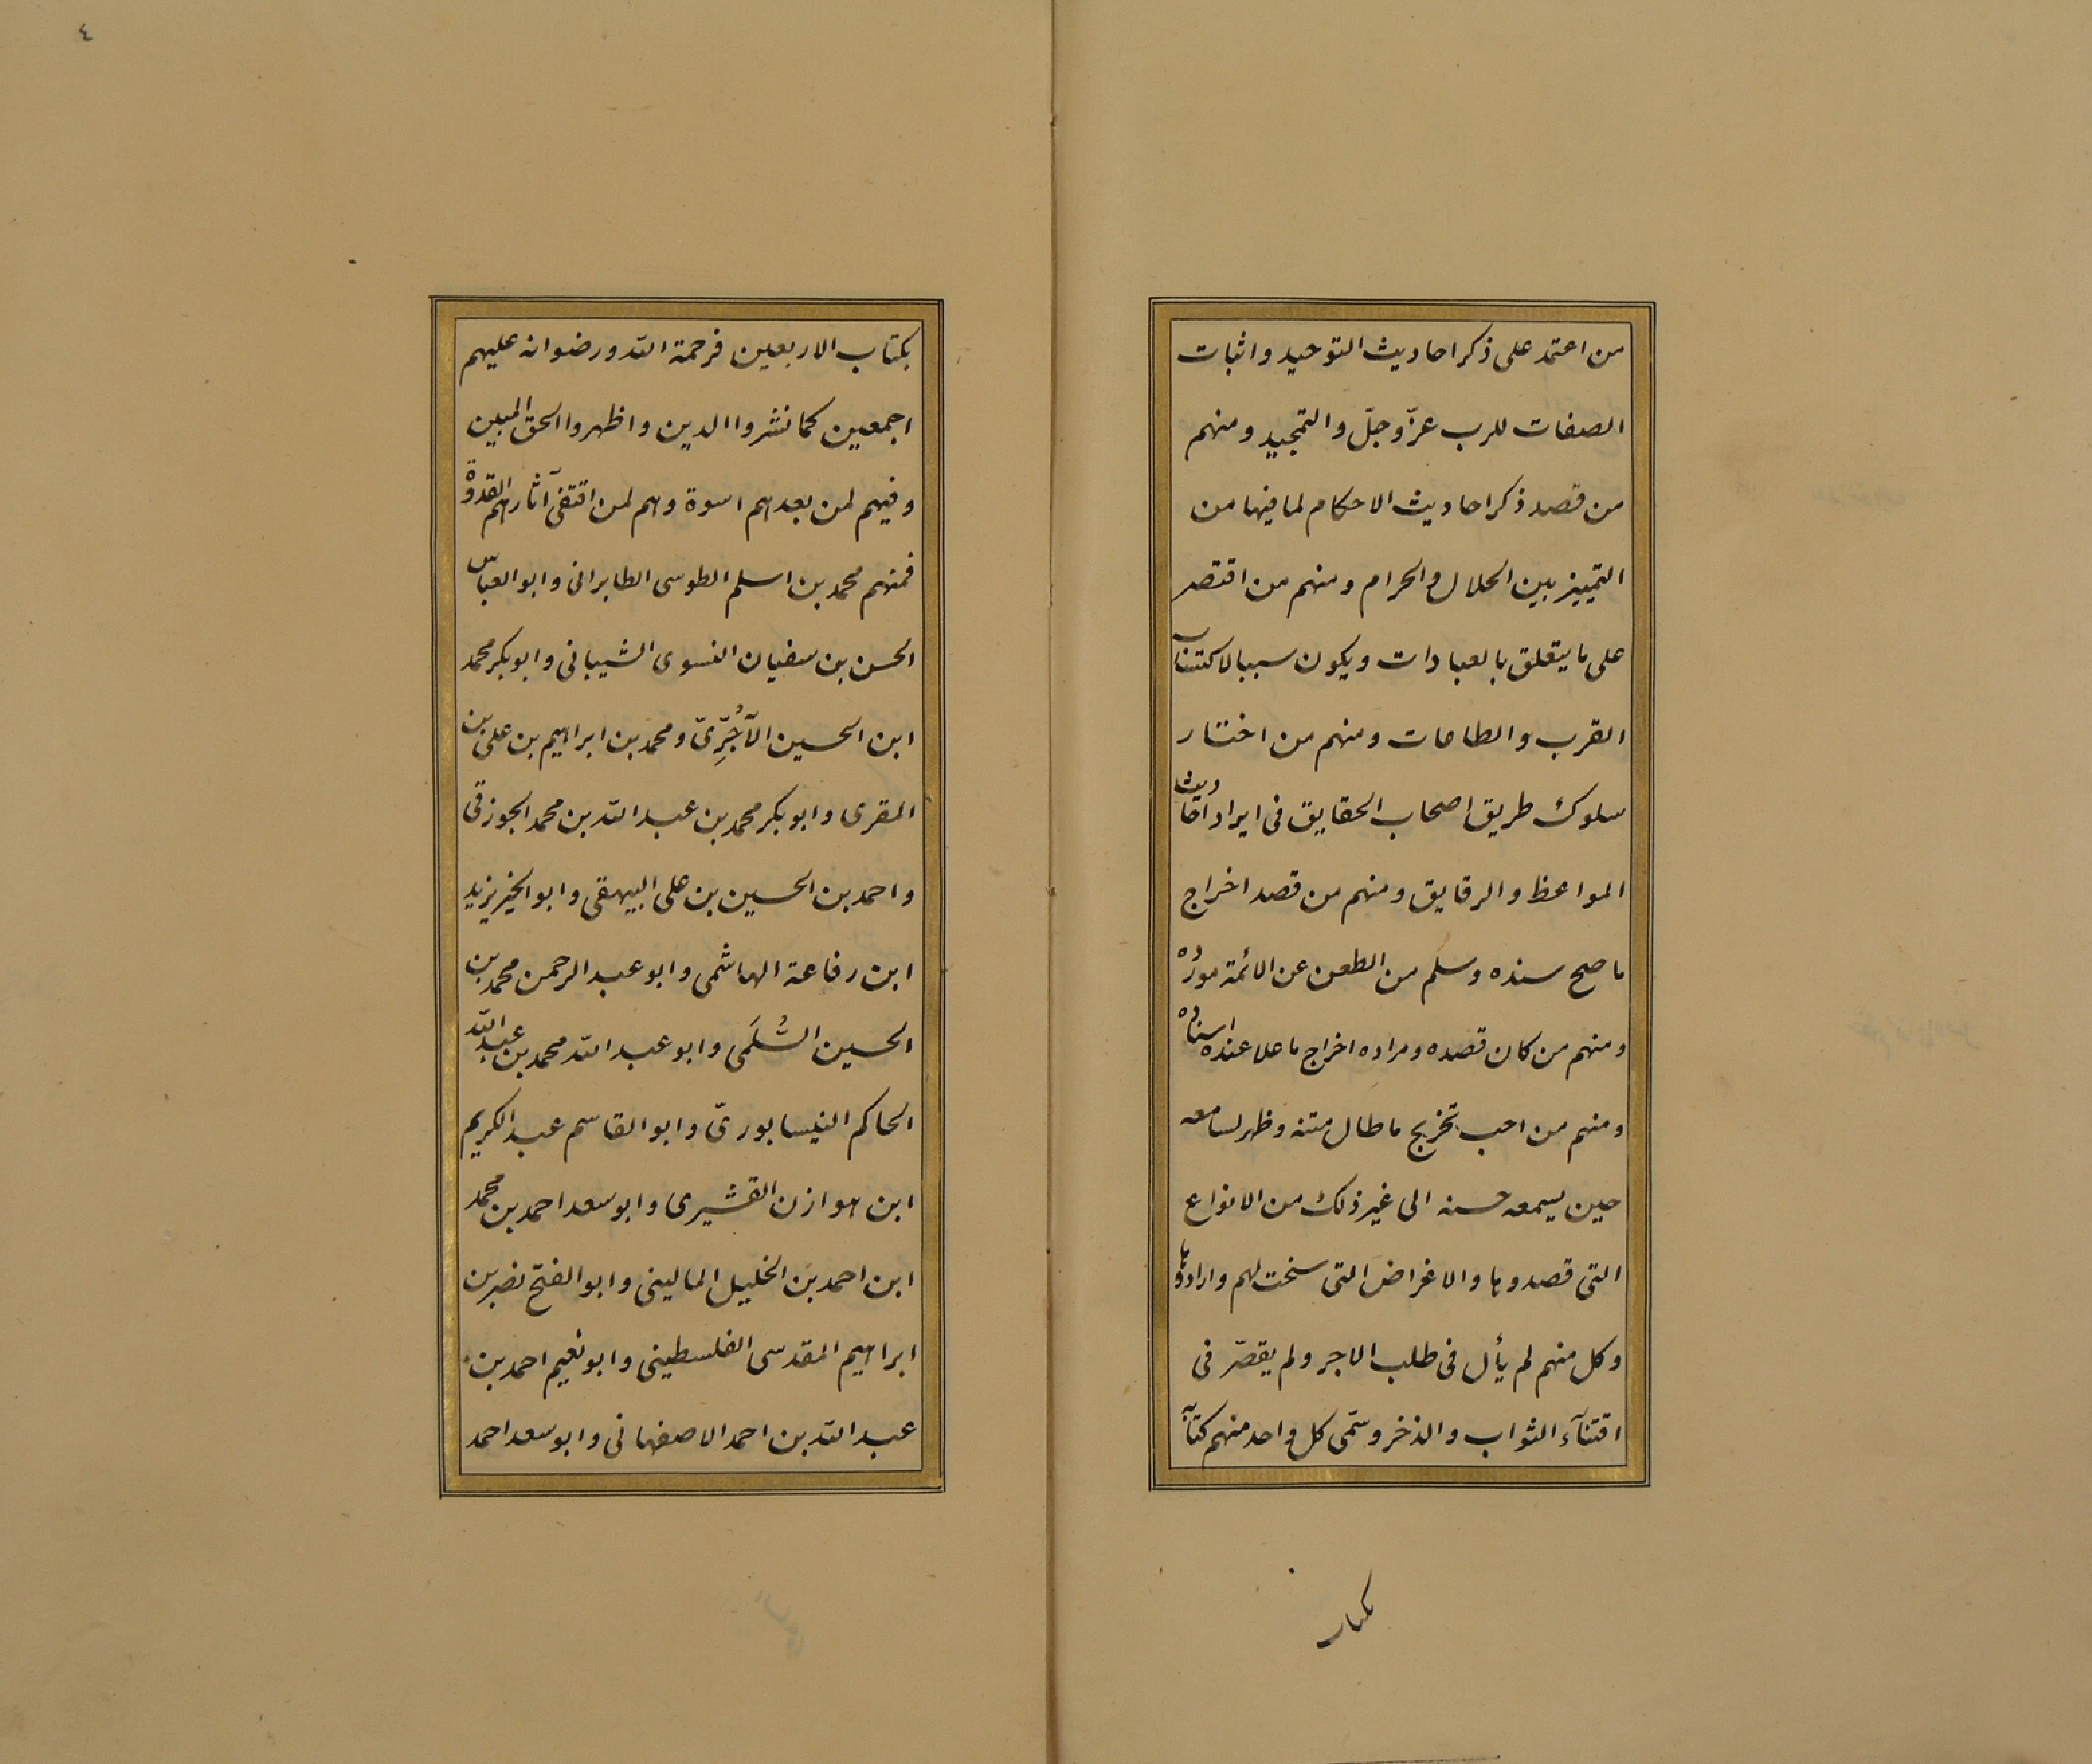 من اعتمد على ذكر احاديث التوحيد واثبات
الصفات للرب عزّ وجلّ والتمجيد ومنهم
من قصد ذكر احاديث الاحكام لما فيها من
التمييز بين الحلال والحرام ومنهم من اقتصر
على ما يتعلق بالعبادات ويكون سببا لاكتساب
القرب والطاعات ومنهم من اختار
سلوك طريق اصحاب الحقايق فى ايراد احاديث
المواعظ والرقايق ومنهم من قصد اخراج
ما صح سنده وسلم من الطعن عن الائمة مورده
ومنهم من كان قصده ومراده اخراج ما علا عنده اسناده
ومنهم من احب تخريج ما طال متنه وظهر لسامعه
حين يسمعه حسنه الى غير ذلك من الانواع
التى قصدوها والاغراض التى سنحت لهم وارادوها
وكل منهم لم يأل فى طلب الاجر ولم يقصّر فى
اقتنآء الثواب والذخر وسمّى كل واحد منهم كتابه
٤
بكتاب الاربعين فرحمة الله ورضوانه عليهم
اجمعين كما نشروا الدين واظهروا الحق المبين
وفيهم لمن بعدهم اسوة وهم لمن اقتفى آثارهم القدوة
فمنهم محمد بن اسلم الطوسى الطابرانى وابو العباس
الحسن بن سفيان النسوى الشيبانى وابو بكر محمد
ابن الحسين الآجُرِّىّ ومحمد بن ابراهيم بن على بن
المقرى وابو بكر محمد بن عبد الله بن محمد الجوزقى
واحمد بن الحسين بن على البيهقى وابو الخير يزيد
ابن رفاعة الهاشمى وابو عبد الرحمن محمد بن
الحسين السُّلَمى وابو عبد الله محمد بن عبد الله
الحاكم النيسابورىّ وابو القاسم عبد الكريم
ابن هوازن القشيرى وابو سعد احمد بن محمد
ابن احمد بن الخليل المالينى وابو الفتح نصر بن
ابراهيم المقدسى الفلسطينى وابو نعيم احمد بن
عبد الله بن احمد الاصفهانى وابو سعد احمد